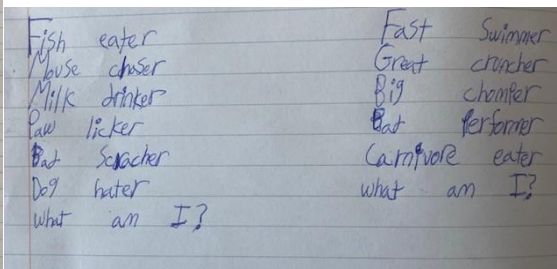 Fish eater
Mouse chaser
Milk drinker
Paw licker
Bad Scracher
Dog hater
What am I?
Fast Swimmer
Great croncher
Big chomper
Bad Performer
Carnivore eater
what am I?